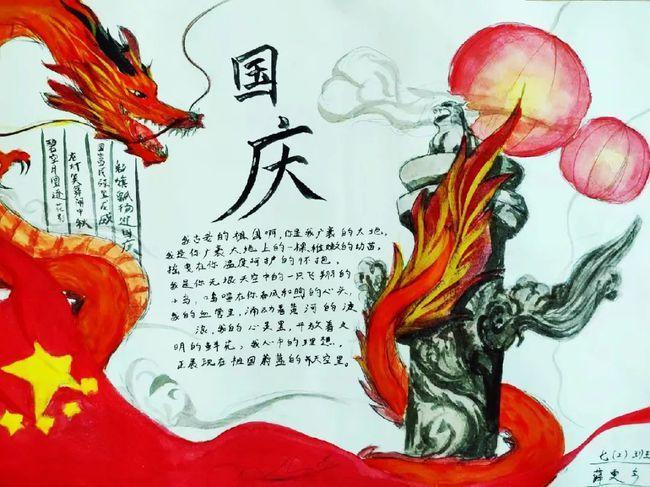 国
庆
彩旗飘扬迎国庆
国富民强
笑舞闹中秋
碧空月圆
我古老的祖国啊,你是我广袤的大地,
我是你广袤大地上的一棵稚嫩的幼苗,
摇曳在你温度呵护的怀抱。
我是你无垠天空中的一只飞翔的
小鸟,鸣啼在你春风和煦的心头
我的血管里,涌动着黄河的波
浪,我的心灵里,开放着文
明的鲜花,我心中的理想,
正展现在祖国蔚蓝的天空里。
七(2)班
薛